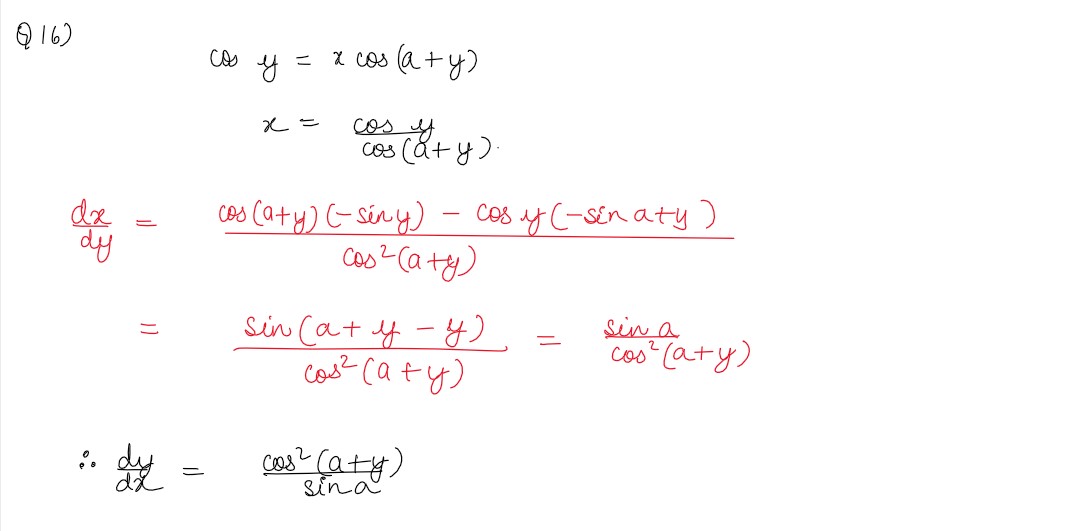 Q 16)
cos y = x cos (a + y)
x = cos y / cos (a + y).
dx/dy = cos (a+y) (-sin y) - cos y (-sin a+y) / cos² (a+y)
= sin (a + y - y) / cos² (a + y) = sin a / cos² (a + y)
∴ dy/dx = cos² (a+y) / sin a